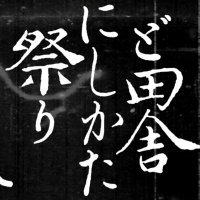 ど田舎
にしかた
祭り